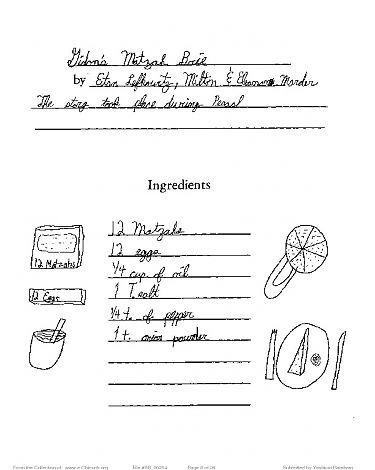 Gidon's Matzah Brie
by Etan Lefkowitz, Milton & Eleanore Marder
The story took place during Pesach
Ingredients
12 Matzahs
12 eggs
1/4 cup of oil
1 T. salt
1/4 t. of pepper
1 t. onion powder
12 Matzahs
12 Eggs
From the Collection of: www.e-Chinuch.org
Page 8 of 26